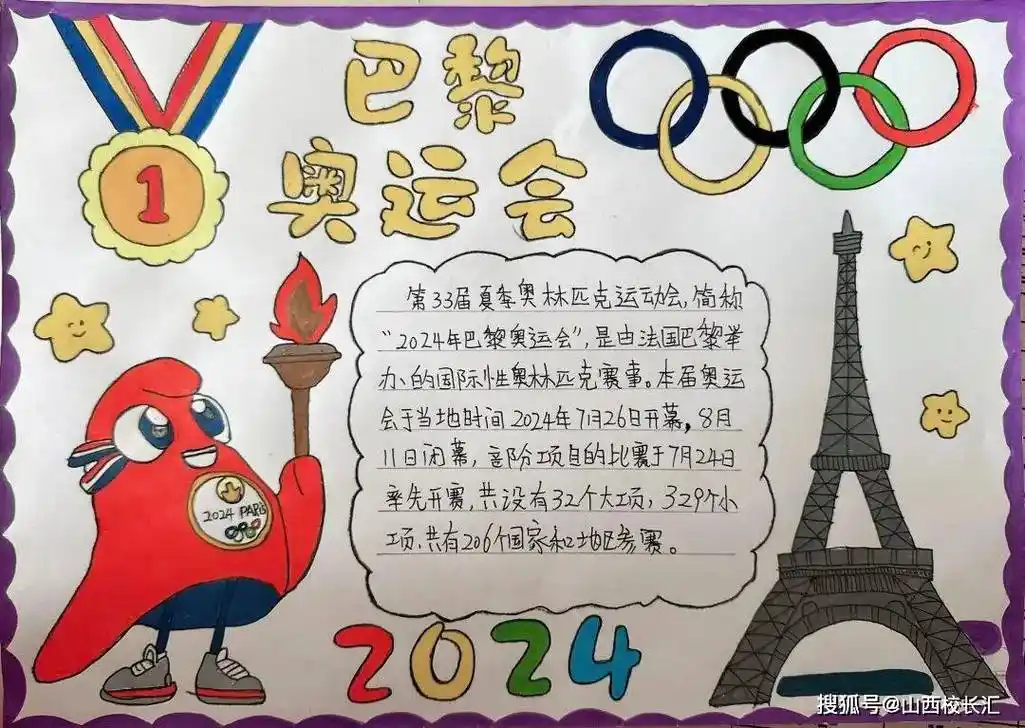 巴黎
奥运会
1
第33届夏季奥林匹克运动会,简称
"2024年巴黎奥运会",是由法国巴黎举
办的国际性奥林匹克赛事。本届奥运
会于当地时间2024年7月26日开幕,8月
11日闭幕,部分项目的比赛于7月24日
率先开赛,共设有32个大项,329个小
项,共有206个国家和地区参赛。
2024 PARIS
2024
搜狐号@山西校长汇